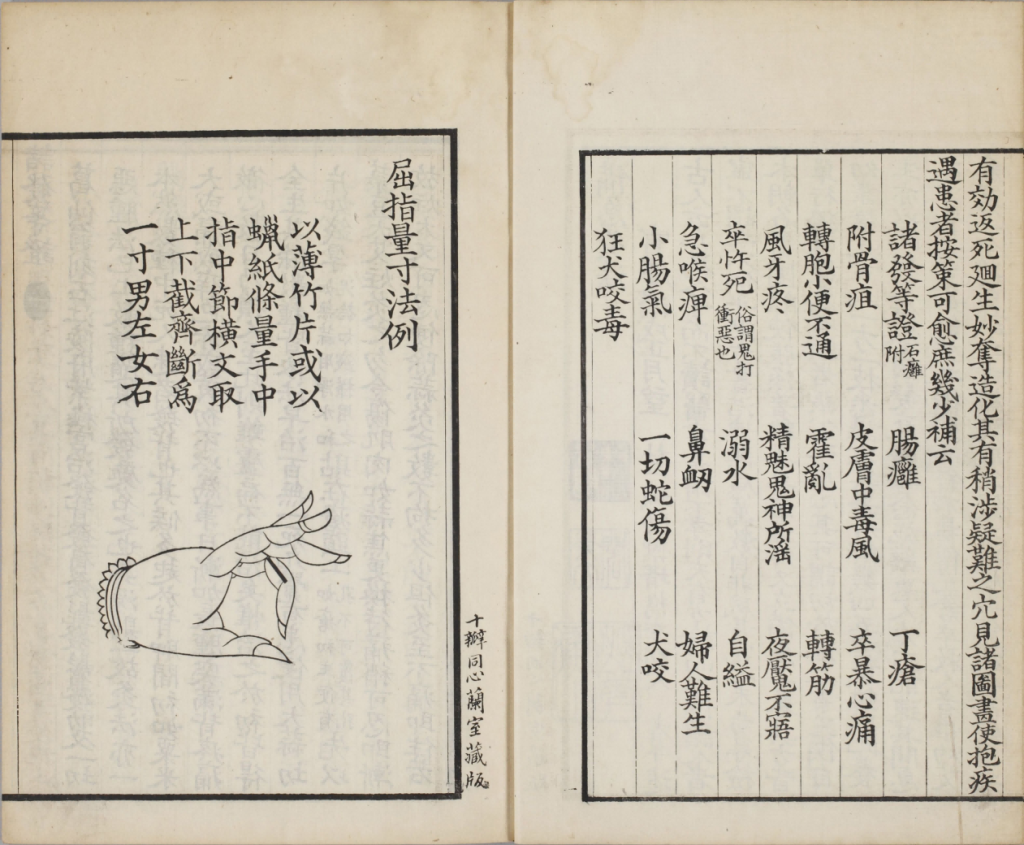 有効返死廻生妙奪造化其有稍涉疑難之穴見諸圖畫使抱疾
遇患者按策可愈庶幾少補云
諸發等證 石癰附 腸癰 丁瘡
附骨疽 皮膚中毒風 卒暴心痛
轉胞小便不通 霍亂 轉筋
風牙疼 精魅鬼神所淫 夜魘不寤
卒忤死 俗謂鬼打衝惡也 溺水 自縊
急喉痺 鼻衂 婦人難生
小腸氣 一切蛇傷 犬咬
狂犬咬毒
屈指量寸法例
以薄竹片或以
蠟紙條量手中
指中節橫文取
上下截齊斷爲
一寸男左女右
十瓣同心蘭室藏版